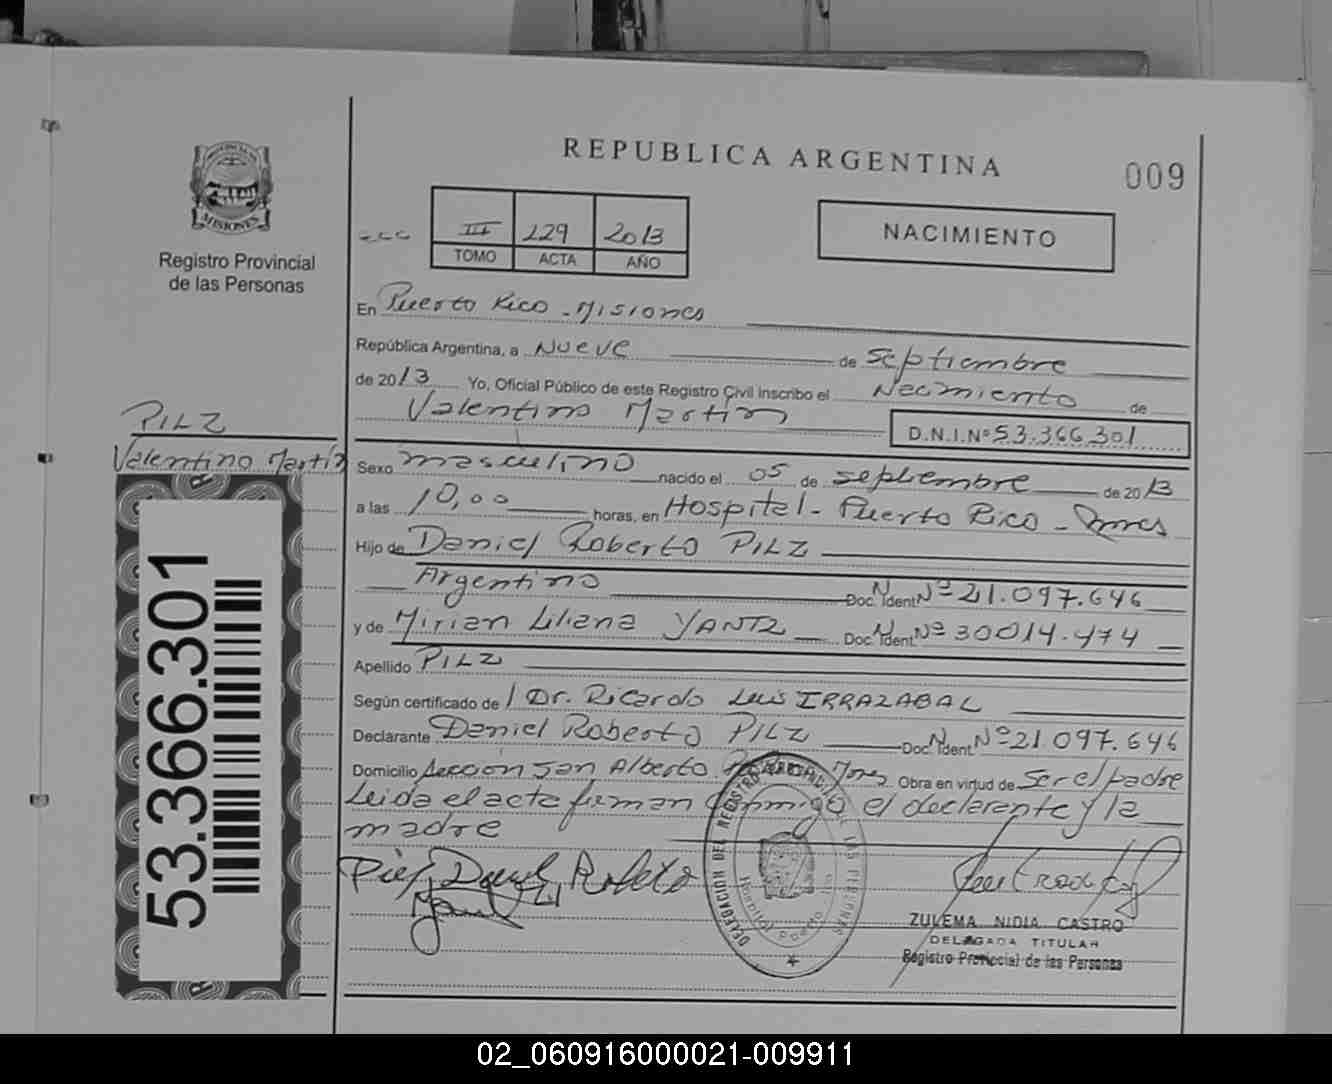 REPUBLICA ARGENTINA
009
PROVINCIA DE
MISIONES
Registro Provincial
de las Personas
III 229 2013
TOMO ACTA AÑO
NACIMIENTO
En Puerto Rico - Misiones
República Argentina, a Nueve de septiembre
de 2013 Yo, Oficial Público de este Registro Civil inscribo el Nacimiento de
Valentino Martin D.N.I.Nº 53.366.301
PILZ
Valentino Martin
Sexo masculino nacido el 05 de septiembre de 2013
a las 10,00 horas, en Hospital - Puerto Rico - Mnes
Hijo de Daniel Roberto PILZ
Argentino Doc. Ident. Nº 21.097.646
y de Mirian Liliana YANTZ Doc. Ident. Nº 30014.474
Apellido PILZ
Según certificado de Dr. Ricardo Luis IRRAZABAL
Declarante Daniel Roberto PILZ Doc. Ident. Nº 21.097.646
Domicilio Sección San Alberto Mnes Obra en virtud de Ser el padre
Leida el acta firman conmigo el declarante y la
madre
Pilz Daniel Roberto
DELEGACION DEL REGISTRO PROVINCIAL DE LAS PERSONAS
Hospital Puerto Rico
ZULEMA NIDIA CASTRO
DELEGADA TITULAR
Registro Provincial de las Personas
53.366.301
02_060916000021-009911